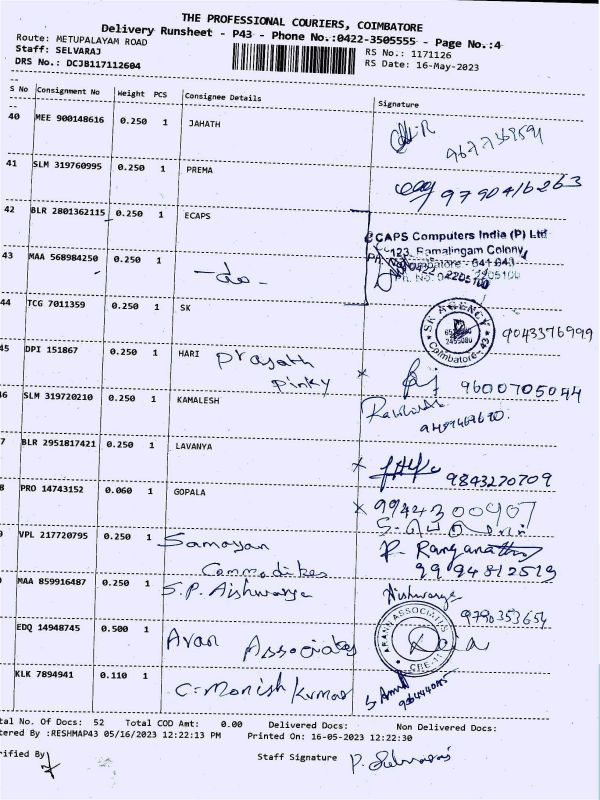 THE PROFESSIONAL COURIERS, COIMBATORE
Delivery Runsheet - P43 - Phone No.:0422-3505555 - Page No.:4
Route: METUPALAYAM ROAD
RS No.: 1171126
Staff: SELVARAJ
RS Date: 16-May-2023
DRS No.: DCJB117112604
S No Consignment No Weight PCS Consignee Details Signature
40 MEE 900148616 0.250 1 JAHATH
41 SLM 319760995 0.250 1 PREMA 9790416263
42 BLR 2801362115 0.250 1 ECAPS
ECAPS Computers India (P) Ltd
123, Ramalingam Colony
43 MAA 568984250 0.250 1 -do-
44 TCG 7011359 0.250 1 SK SK AGENCY Coimbatore-43 9043376999
45 DPI 151867 0.250 1 HARI Prasath
Pinky 9600705044
46 SLM 319720210 0.250 1 KAMALESH
7 BLR 2951817421 0.250 1 LAVANYA 9843220709
8 PRO 14743152 0.060 1 GOPALA 9944300907
VPL 217720795 0.250 1 Samayan
Commodities P. Ranganathan
9994812519
MAA 859916487 0.250 1 S.P. Aishwarya Aishwarya
9790353654
EDQ 14948745 0.500 1 Aran Associates ARANN ASSOCIATES CBE-11
KLK 7894941 0.110 1 C. Monish Kumar
tal No. Of Docs: 52 Total COD Amt: 0.00 Delivered Docs: Non Delivered Docs:
tered By :RESHMAP43 05/16/2023 12:22:13 PM Printed On: 16-05-2023 12:22:30
rified By Staff Signature P. Selvaraj